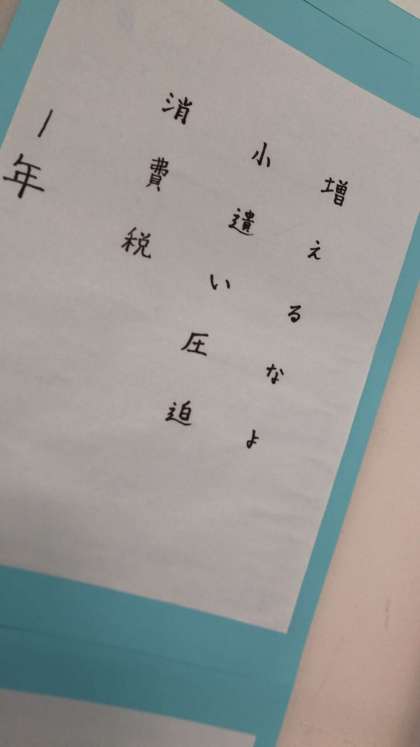 増えるなよ
小遣い圧迫
消費税
1年